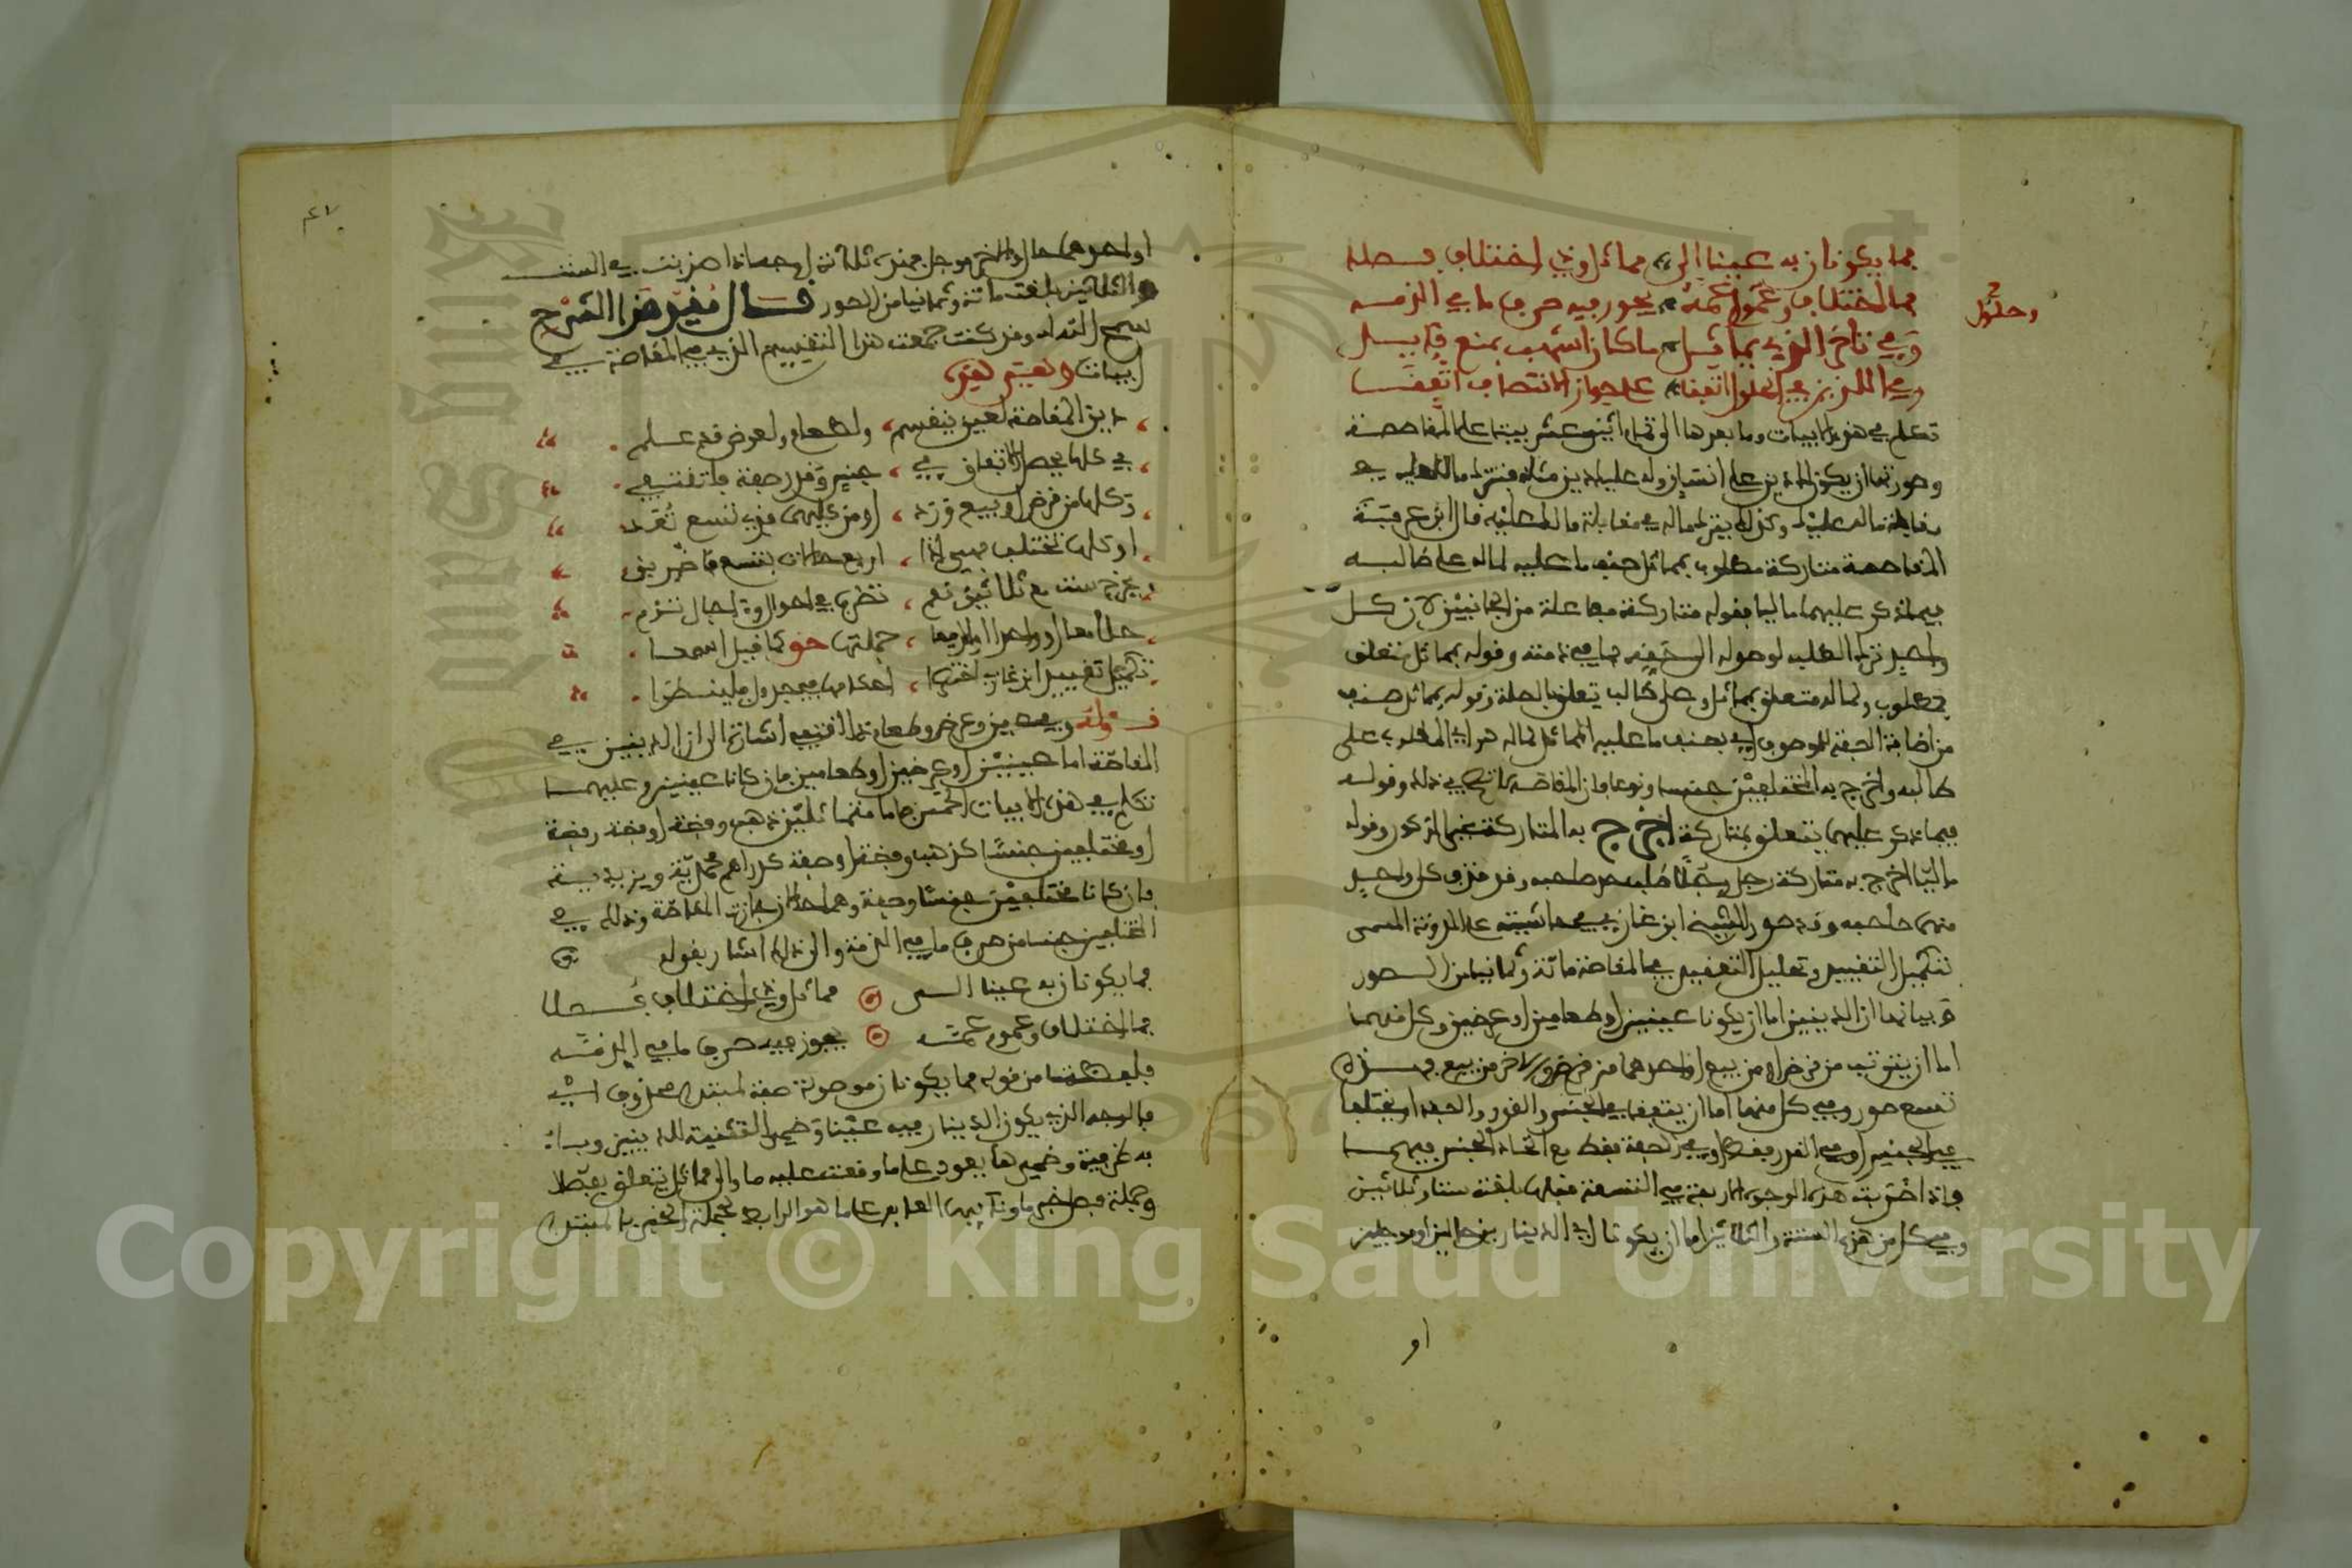 فما يكونان به عينا إلى مماثل وذي اختلاف فصله
فما اختلاف وعموا عمه يجوز فيه صرف ما في الذمه
وفي تأخر الذي يماثل ما كان أشهب بمنع قايل
وفي اللذين في الحلول اتفقا على جواز الانتصاف اتفقا
وحلول
تكلم في هذه الابيات وما بعدها الى تمام اثني عشر بيتا على المقاصصة
وصورتها ان يكون لك دين على انسان وله عليك دين مثله فتترك مالك عليه في
مقابلة ما له عليك وكذلك يترك ماله في مقابلة مالك عليه قال ابن عرفة
المقاصة متاركة مطلوب بمماثل صنف ما عليه لماله على طالبه
فيما ذكر عليهما ماليا فقوله متاركة مفاعلة من الجانبين لان كل
واحد ترك الطلب لوصوله الى حقه بما في ذمته وقوله بمماثل متعلق
بمطلوب ولماله متعلق بمماثل وعلى طالب تعلق بالصلة وقوله بمماثل صنف
من اضافة الصفة للموصوف أي بصنف ما عليه المماثل لماله هو أي المطلوب على
طالبه واخرج به المختلفين جنسا ونوعا وان المقاصة في ذلك وقوله
فيما ذكر عليهما يتعلق بمتاركة اخرج به المتاركة في غير المذكور وقوله
ماليا اخرج به متاركة رجل رجلا طلب صاحبه وقد قذف كل واحد
منهما صاحبه وقد صور الشيخ ابن غازي في حاشيته على المدونة المسمى
تكميل التقييد وتحليل التعقيد في المقاصة مائة وثمانيا من الصور
وبيانها ان الدينين اما ان يكونا عينين او طعامين او عرضين وكل منهما
اما ان يترتب من قرض او من بيع او احدهما من قرض والاخر من بيع فهذه
تسع صور وفي كل منها اما ان يتفقا في الجنس والقدر والصفة او يختلفا
في الجنس او في القدر فقط او في الصفة فقط مع اتحاد الجنس فيهما
واذا ضربت هذه الوجوه الاربعة في التسعة قبلها بلغت ستا وثلاثين
وفي كل من هذه الستة والثلاثين اما ان يكونا أي الديناران حالين او مؤجلين
او
او احدهما حال والاخر مؤجل فهذه ثلاثة اوجه اذا ضربت في الست
والثلاثين بلغت مائة وثمانيا من الصور قال مقيد هذا الشرح
سمح الله له وقد كنت جمعت هذا التقييم الذي في المقاصة في
ابيات وهي هذه
دين المقاصة لعين ينقسم ولطعام ولعرض قد علم
في كلها يحصل الاتفاق في جنس وقدر صفة فلتقتفي
وكلها من قرض او بيع ورد او من كليهما فذي تسع تعد
او كلها تختلف فهي اذا اربع حالات بتسع فاضرب ذي
يخرج ست مع ثلاثين نعم تضربها في احوال واجال تؤم
حلا معا او واحد او لا معا جملتها حق كما قيل اسمعا
تكميل تقييد ابن غازي اختصا احكامها في جدول فلينظرا
قوله وفي عين وعرض وطعام ما اقتفي اشارة الى ان الدينين في
المقاصة اما عينين او عرضين او طعامين فان كانا عينين وعليهما
تكلم في هذه الابيات الخمس فاما متماثلين ذهب وفضة او فضة وفضة
او مختلفين جنسا كذهب وفضة او صفة كدراهم محمدية ويزيدية
فان كانا مختلفين جنسا وصفة وهما حالان جازت المقاصة وذلك في
المختلفين جنسا من صرف ما في الذمة والى ذلك اشار بقوله
فما يكونان به عينا الى مماثل وذي اختلاف فصلا
فما اختلاف وعموم عمه يجوز فيه صرف ما في الذمه
فلفظ ما من قوله فما يكونان موصولة صفة لمبتدا محذوف اي
فالوجه الذي يكون الدينار فيه عينا وضمير التثنية للدينين وباء
به ظرفية وضميرها يعود على ما وقعت عليه ما والى مماثل يتعلق بفصلا
وجملة فصل خبر ما ونايبه العايد على ما هو الرابط لجملة الخبر بالمبتدا